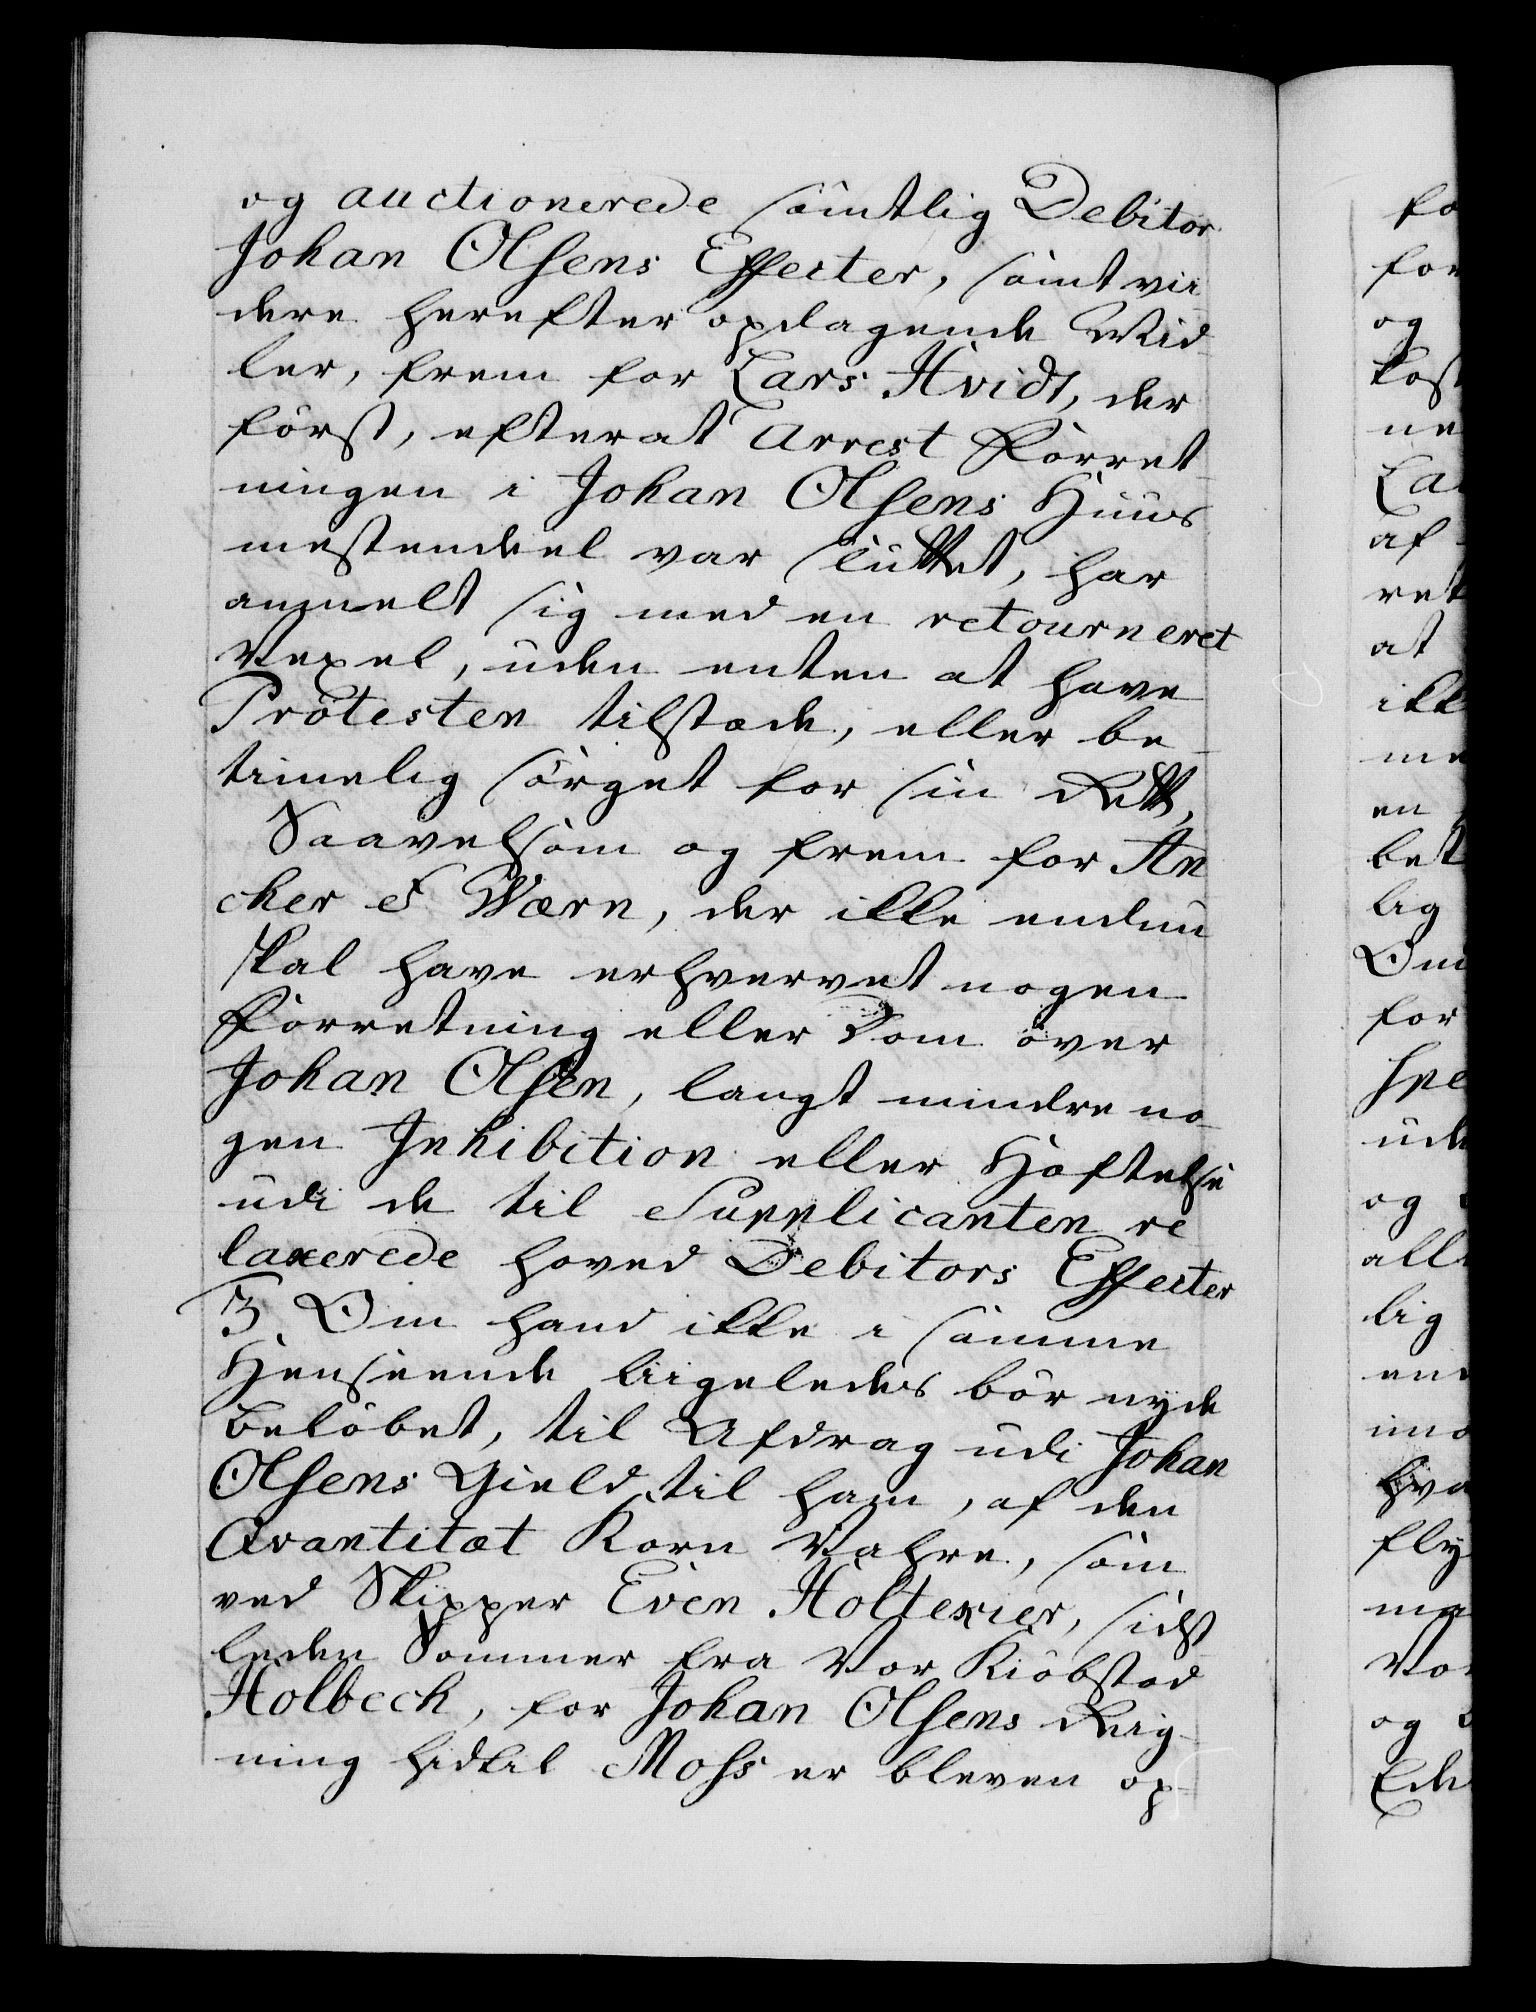 og auctionerede samtlig Debitor
Johan Olsens Effecter, samt vii
dere herefter opdagende Mid-
ler, frem for Lars Hvidt, der
först, efter at Arrest Forret-
ningen i Johan Olsens Huus
mestendeel var sluttet, har
anmelt sig med en retourneret
Vexel, uden enten at have
Protesten tilstæde, eller be-
timelig sörget for sin Rett,
Saavelsom og frem for An
cker & Wærn, der ikke endnu
skal have erhvervet nogen
Forretning eller Dom over
Johan Olsen, langt mindre no-
gen Inhibition eller Hæftelse
udi de til Supplicanten re
laxerede hoved Debitors Effecter
3, Om hand ikke i samme
Henseende liigeledes bör nyde
Belöbet, til Afdrag udi Johan
Olsens Gield til ham, af den
Qvantitæt Korn Vahre, som
ved Skipper Even Holtexier, sidst
leden Sommer fra Vor Kiöbstad
Holbech, for Johan Olsens Reig-
ning hidtil Moss er bleven op-
fo
for
og
kost
ne
La
af
ret
at
ikk
me
en
bet
lig
Om
for
Spe
ude
og
all
lig
end
imo
hva
fly
ma
Vor
og
Ed